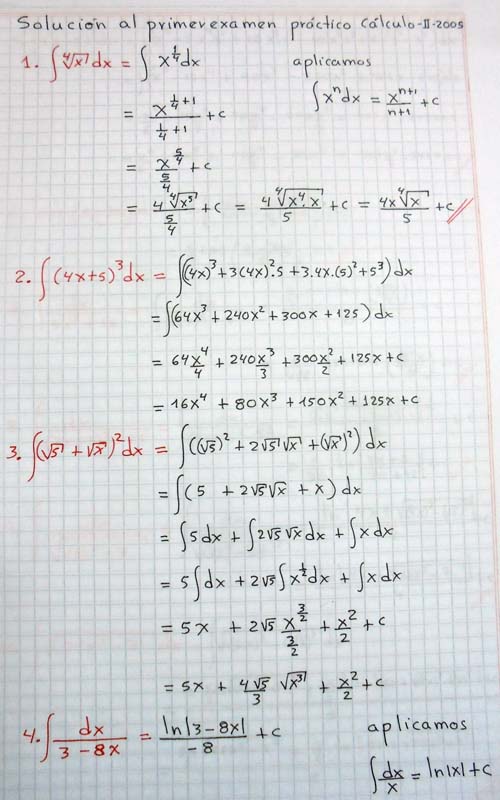 Solución al primer examen práctico Cálculo-II-2005
1. ∫ ∜x dx = ∫ x^(1/4) dx aplicamos
= x^(1/4+1)/(1/4+1) + c ∫ xⁿ dx = x^(n+1)/(n+1) + c
= x^(5/4)/(5/4) + c
= 4 ∜x⁵/(5/4) + c = 4 ∜(x⁴·x)/5 + c = 4x ∜x/5 + c
2. ∫ (4x+5)³ dx = ∫((4x)³ + 3(4x)²·5 + 3·4x·(5)² + 5³) dx
= ∫(64x³ + 240x² + 300x + 125) dx
= 64 x⁴/4 + 240 x³/3 + 300 x²/2 + 125x + c
= 16x⁴ + 80x³ + 150x² + 125x + c
3. ∫(√5 + √x)² dx = ∫((√5)² + 2√5 √x + (√x)²) dx
= ∫(5 + 2√5 √x + x) dx
= ∫5 dx + ∫2√5 √x dx + ∫x dx
= 5∫dx + 2√5 ∫x^(1/2) dx + ∫x dx
= 5x + 2√5 x^(3/2)/(3/2) + x²/2 + c
= 5x + 4√5/3 √x³ + x²/2 + c
4. ∫ dx/(3-8x) = ln|3-8x|/-8 + c aplicamos
∫ dx/x = ln|x| + c